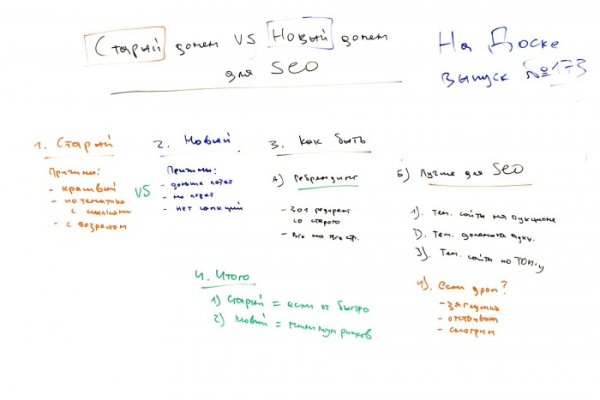 Старый домен VS Новый домен
для SEO
На Доске
выпуск №173
1. Старый
Причины:
- красивый
- по тематике
с ссылками
- с возрастом
VS
2. Новый
Причины:
- дольше
- не
- нет санкций
3. Как быть
А) Ребрендинг
- 301 редирект
со старого
- Все на все стр.
Б) Лучше для SEO
1). Тем. сайты на аукционе
2). Тем. домены аукц.
3). Тем. сайты по ТОП-у
4). Если дроп?
- заглушка
- отстояться
- смотрим
4. Итого
1) Старый = если ок быстро
2) Новый = минимум рисков